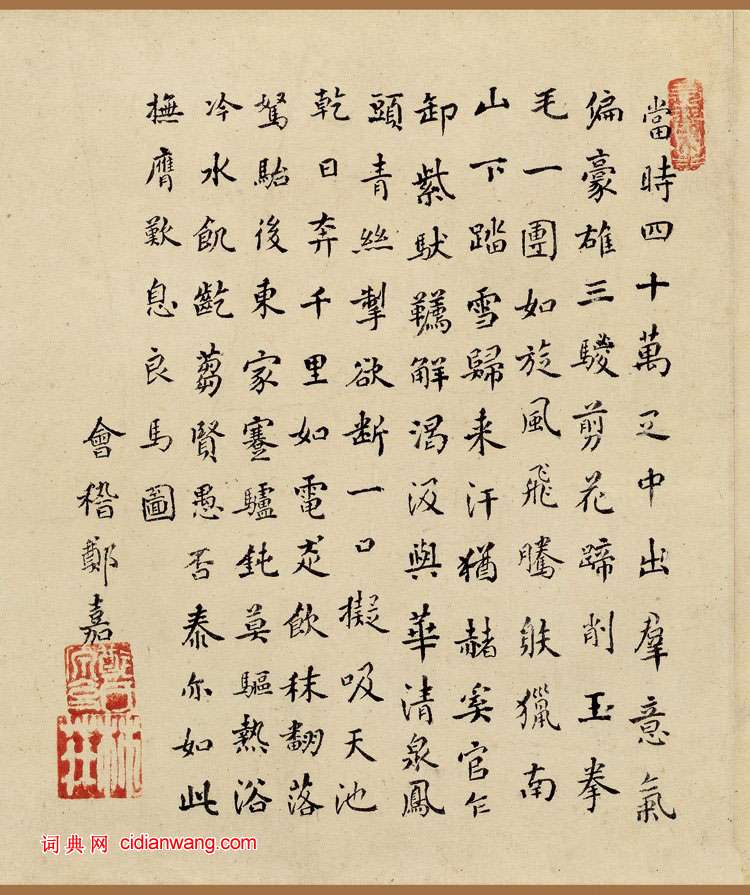 當時四十萬疋中出羣意氣
偏豪雄三騣剪花蹄削玉拳
毛一團如旋風飛騰䠶獵南
山下踏雪歸来汗猶赭奚官乍
卸紫馱韉解渴汲與華清泉鳳
頭青絲掣欲断一口擬吸天池
乾日奔千里如電走飲秣翻落
駑駘後東家蹇驢鈍莫驅熱浴
冷水飢齕蒭賢愚否泰亦如此
撫膺歎息良馬圖
會稽鄭嘉
词典网 cidianwang.com